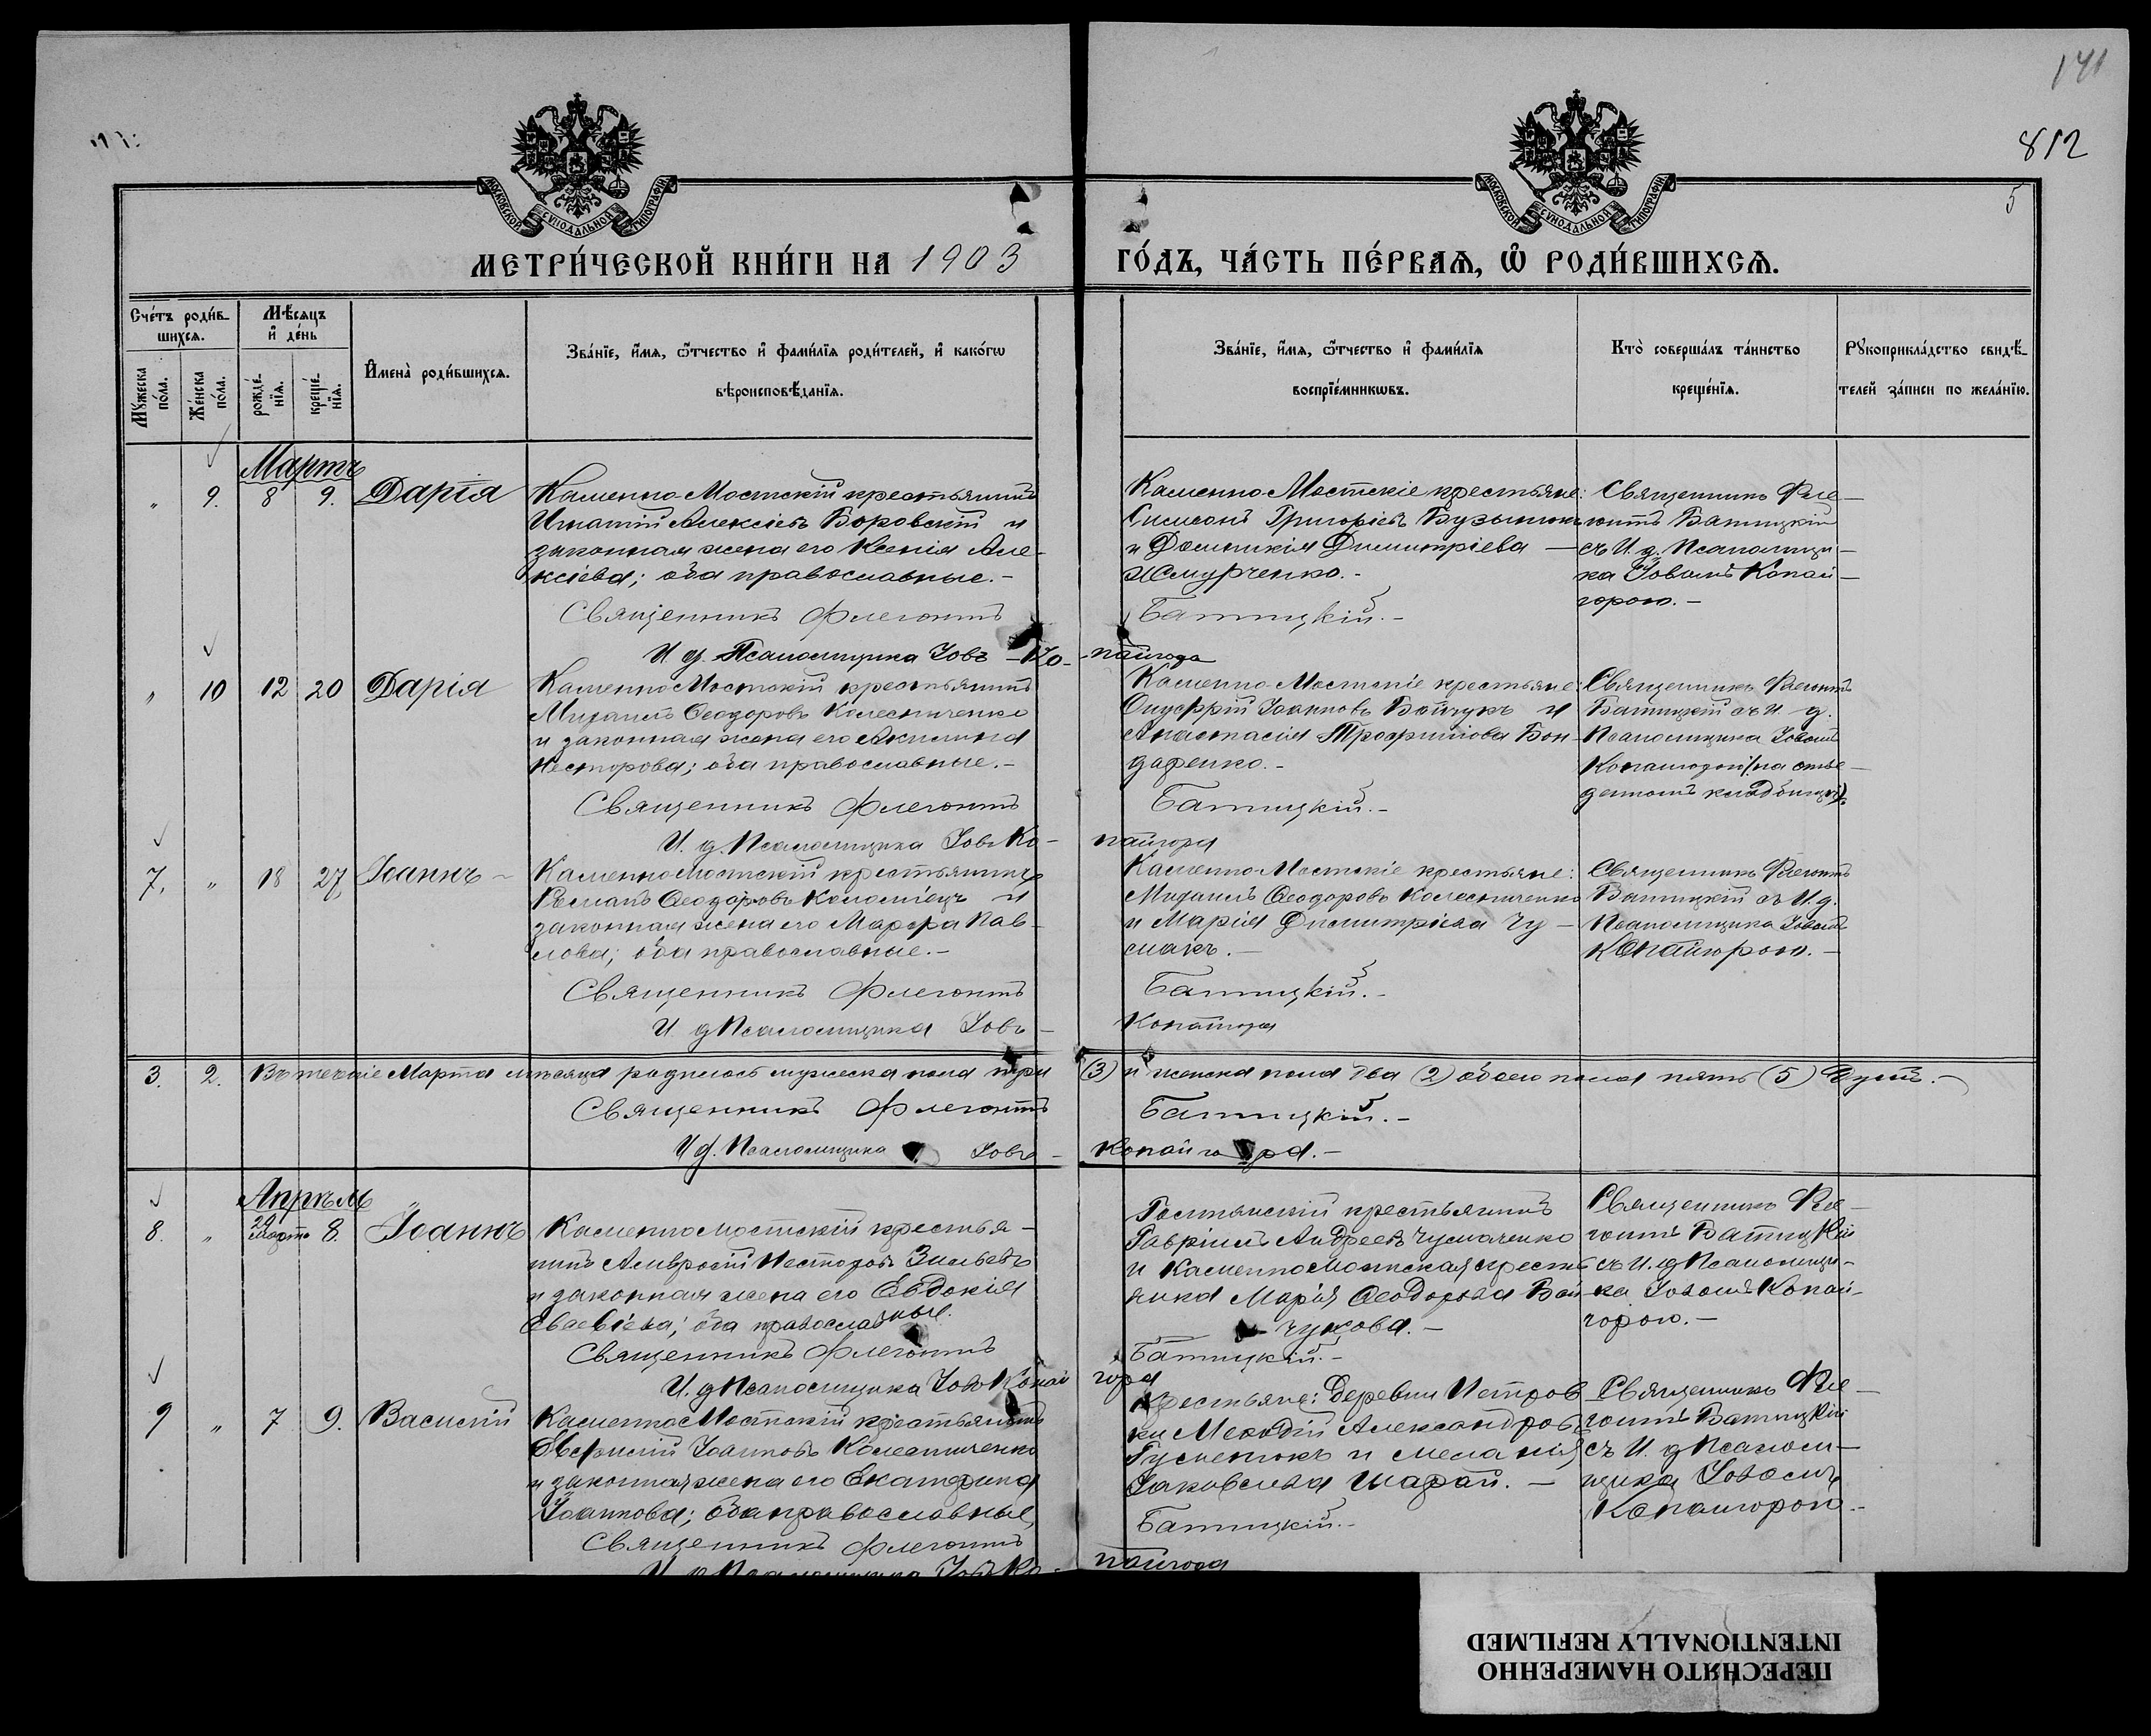 141
812
5
МОСКОВСКОЙ СѴНОДАЛЬНОЙ ТИПОГРАФІИ
МОСКОВСКОЙ СѴНОДАЛЬНОЙ ТИПОГРАФІИ
МЕТРИ́ЧЕСКОЙ КНИ́ГИ НА 1903 ГО́ДЪ, ЧА́СТЬ ПЕ́РВАѦ, Ѽ РОДИ́ВШИХСѦ.
Сче́тъ роди́в-
шихсѧ.
Мꙋ́жеска по́ла.
Же́нска по́ла.
Мѣ́сѧцъ
и҆ де́нь
рожде́-нїѧ.
креще́-нїѧ.
И҆мена̀ роди́вшихсѧ.
Зва́нїе, и҆́мѧ, ѻ҆́тчество и҆ фами́лїѧ роди́телей, и҆ како́гѡ
вѣроисповѣ́данїѧ.
Зва́нїе, и҆́мѧ, ѻ҆́тчество и҆ фами́лїѧ
воспрїе́мникѡвъ.
Кто̀ соверша́лъ та́инство
креще́нїѧ.
Рꙋкоприкла́дство свидѣ́-
телей за́писи по жела́нїю.
Мартъ
„ 9. 8 9. Дарія
Каменно-Мостскій крестьянинъ
Игнатій Алексіевъ Боровскій и
законная жена его Ксенія Але-
ксіева; оба православные.-
Священникъ Флегонтъ
И д. Псаломщика Іовъ - Ко-
Каменно-Мостскіе крестьяне:
Симеонъ Григоріевъ
и Домникія Димитріева —
Жмурченко.-
Батицкій.-
пайгора
Священникъ Фле-
гонтъ Батицкій
съ И. д. Псаломщи-
ка Іовомъ Копай-
горою.-
„ 10 12 20 Дарія
Каменно Мостскій крестьянинъ
Михаилъ Ѳеодоровъ Колесниченко
и законная жена его Акилина
Несторова; оба православные.-
Священникъ Флегонтъ
И. д. Псаломщика Іовъ Ко-
Каменно-Мостскіе крестьяне:
Онуфрій Іоанновъ Бойчукъ и
Анастасія Трофимова Бон-
даренко.-
Батицкій.-
пайгора
Священникъ Флегонтъ
Батицкій съ И д.
Псаломщика Іовомъ
7. „ 18 27. Іоаннъ -
Каменно Мостскій крестьянинъ
Романъ Ѳеодоровъ Коломіецъ и
законная жена его Марфа Пав-
лова; оба православные.-
Священникъ Флегонтъ
И. д Псаломщика Іовъ -
Каменно-Мостскіе крестьяне:
Михаилъ Ѳеодоровъ Колесниченко
и Марія Димитріева Чу-
макъ.-
Батицкій.-
Копайгора
Священникъ Флегонтъ
Батицкій съ И. д.
Псаломщика Іовомъ
Копайгорою.-
3. 2. Въ теченіе Марта мѣсяца родилось мужеска пола три (3) и женска пола два (2) обоего пола пять (5) душъ.-
Священникъ Флегонтъ Батицкій.-
И д. Псаломщика Іовъ - Копайгора.-
Апрѣль
8. „ Марта 8. Іоаннъ
Каменно Мостскій крестья-
нинъ Амвросій Несторовъ
и законная жена его Евдокія
оба православные.
Священникъ Флегонтъ
И. д Псаломщика Іовъ Копай
крестьянинъ
Гавріилъ Андреевъ Чумаченко
и Каменно Мостская кресть
янка Марія Ѳеодорова Бой
чукова.-
Батицкій.-
гора
Священникъ Фле-
гонтъ Батицкій
съ И. д Псаломщи-
ка Іовомъ Копай-
горою.-
9 „ 7 9. Василій
Каменно Мостскій крестьянинъ
Іоанновъ Колесниченко
и законная жена его Екатерина
Іоаннова; оба православные,
Священникъ Флегонтъ
И. д Псаломщика Іовъ Ко-
крестьяне: деревни Петров
ки Меѳодій Александровъ
и Меланія
Іаковлева Шарай. -
Батицкій.-
пайгора
Священникъ Фле-
гонтъ Батицкій
съ И. д Псалом-
щика Іовомъ
Копайгорою.-
ПЕРЕСНЯТО НАМЕРЕННО
INTENTIONALLY REFILMED